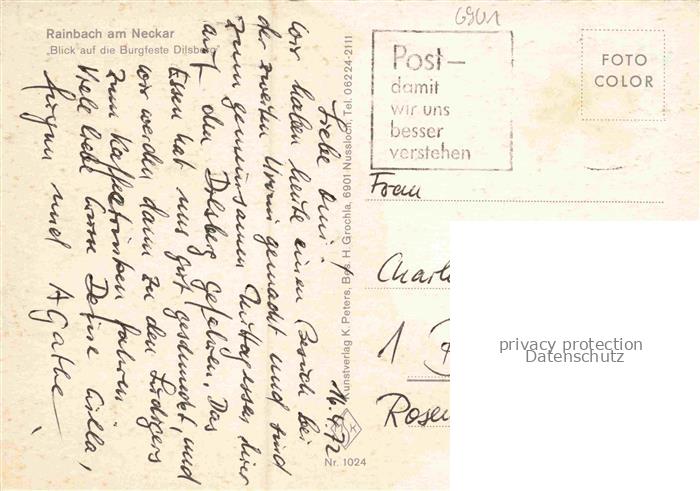 Rainbach am Neckar
"Blick auf die Burgfeste Dilsberg"
16.4.72
Liebe Omi!
Wir haben heute einen Besuch bei
der zweiten Ururi gemacht und sind
zum gemeinsamen Mittagessen hier
auf den Dilsberg gefahren. Das
Essen hat uns gut geschmeckt, und
wir werden dann zu den Lüdigers
zum Kaffeetrinken fahren.
Viele liebe Grüsse Deine Cilla,
Jürgen und Agathe
Kunstverlag K. Peters, Bes. H. Grochla, 6901 Nussloch, Tel. 06224-2111
K
Nr. 1024
6901
Post-
damit
wir uns
besser
verstehen
FOTO
COLOR
Frau
Charl
1
Rosen
privacy protection
Datenschutz